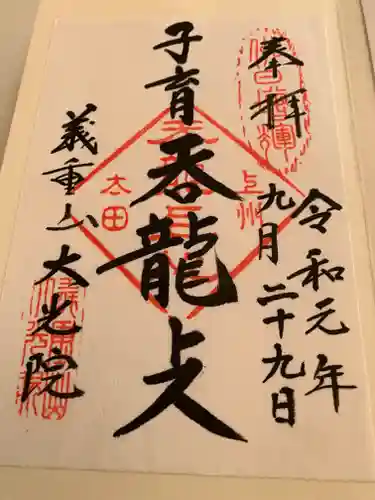 奉拝
令和元年
九月二十九日
子育呑龍上人
義重山大光院
上州
太田